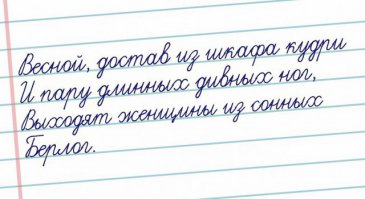 Весной, достав из шкафа кудри
И пару длинных дивных ног,
Выходят женщины из сонных
Берлог.